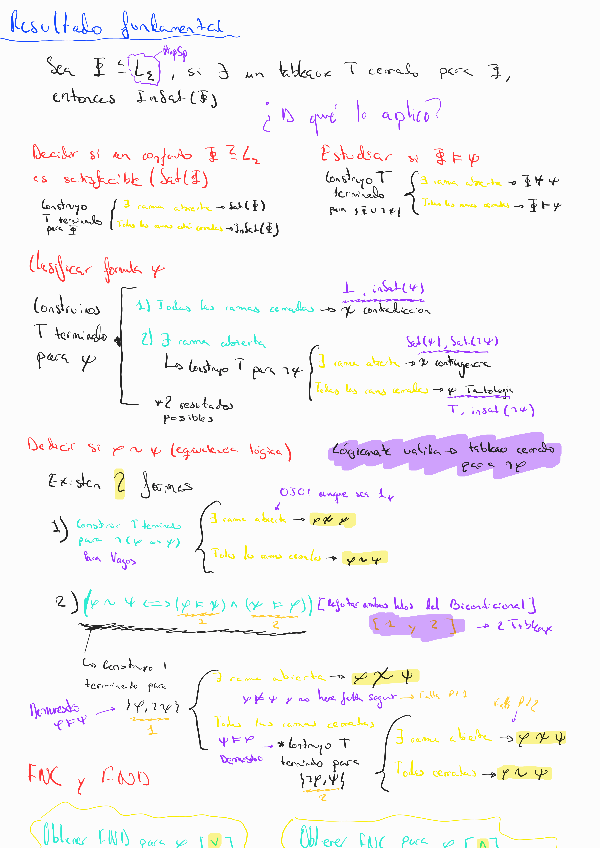 Resultado fundamental
HipSp
Sea Φ ⊆ L_Σ, si ∃ un tableaux T cerrado para Φ,
entonces InSat(Φ)
¿A qué lo aplico?
Decidir si un conjunto Φ ⊆ L_Σ
es satisfacible (Sat(Φ))
Construyo
T terminado
para Φ
∃ rama abierta → Sat(Φ)
Todas las ramas cerradas → InSat(Φ)
Estudiar si Φ ⊨ ψ
Construyo T
terminado
para {Φ ∪ ¬ψ}
∃ rama abierta → Φ ⊭ ψ
Todas las ramas cerradas → Φ ⊨ ψ
Clasificar formula ψ
Construimos
T terminado
para ψ
⊥, insat(ψ)
1) Todas las ramas cerradas → ψ contradiccion
2) ∃ rama abierta
↳ Construyo T para ¬ψ
Sat(ψ), Sat(¬ψ)
∃ rama abierta → ψ contingencia
Todas las ramas cerradas → ψ Tautologia
T, insat(¬ψ)
*2 resultados
posibles
Deducir si φ ~ ψ (equivalencia lógica)
Lógicamente valida → tableau cerrado
para ¬φ
Existen 2 formas
OJO! aunque sea 1
1) Construir T terminado
para ¬(φ ↔ ψ)
Para Vagos
∃ rama abierta → φ ≁ ψ
Todas las ramas cerradas → φ ~ ψ
2) (φ ~ ψ <=> (φ ⊨ ψ) ∧ (ψ ⊨ φ))
1 2
[ambos lados del Bicondicional]
[1 y 2] → 2 Tableaux
↳ Construyo T
terminado para
{φ, ¬ψ}
1
Demuestro
φ ⊨ ψ
∃ rama abierta → φ ≁ ψ
φ ⊭ ψ y no hace falta seguir → falla P1/2
Todas las ramas cerradas
ψ ⊨ φ
Demuestro
→ *Construyo T
terminado para
{¬φ, ψ}
2
falla P1/2
∃ rama abierta → φ ≁ ψ
Todas cerradas → φ ~ ψ
FNC y FND
Obtener FND para φ [∨]
Obtener FNC para φ [∧]